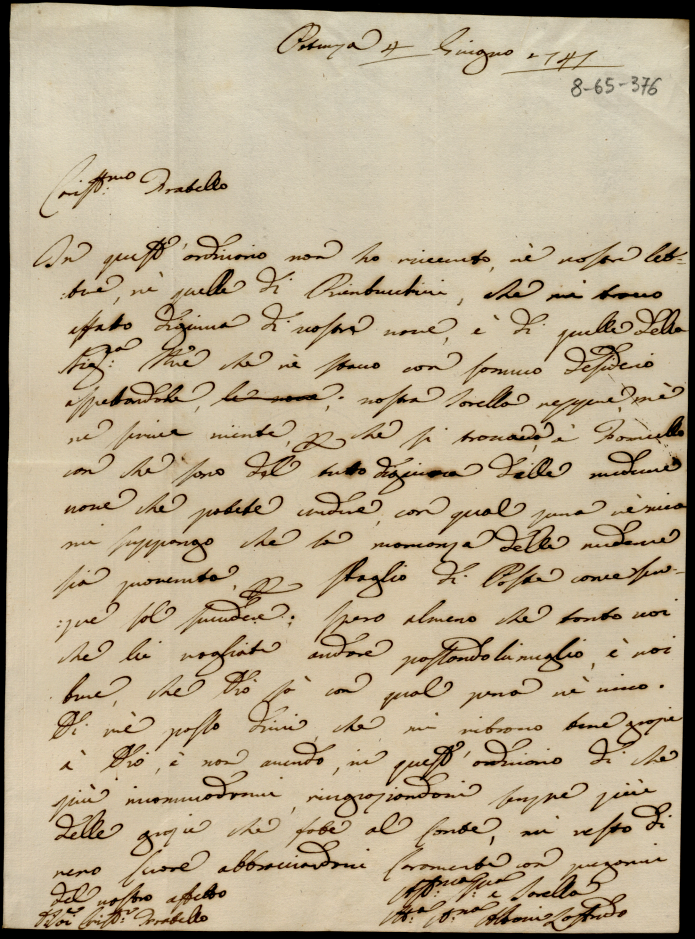 4 Giugno 1741
8-65-376
Cariss.mo Fratello
In quest'ordinario non ho riceuuto, nè uostre let-
tere, nè quelle di che mi trouo
affato digiuna di uostre noue, è di quelle della
Sig.ra che ne stauo con sommo desiderio
aspetandole, uostra sorella neppure mè
ne scriue niente, che si troua à
con che sono del tutto digiuna delle medeme
noue che potete credere, con qual pena ne uiuo
mi suppongo che la mancanza delle medeme
sia prouenuta sbaglio di Posta come sem-
pre sol succedere; spero almeno che tanto uoi
che lei uogliate andare passandola meglio, è uoi
bene, che Dio sà con qual pena nè uiuo.
Di mè posso dirui, che mi ritrouo bene grazie
à Dio, è non auendo, in quest'ordinario di che
più incommodarui, ringraziandoui sempre più
delle grazie che fate al Conte, mi resto di
uero Cuore abbracciandoui Caramente con pregarui
del uostro affetto
Sorella
Di Voi Cariss.o Fratello